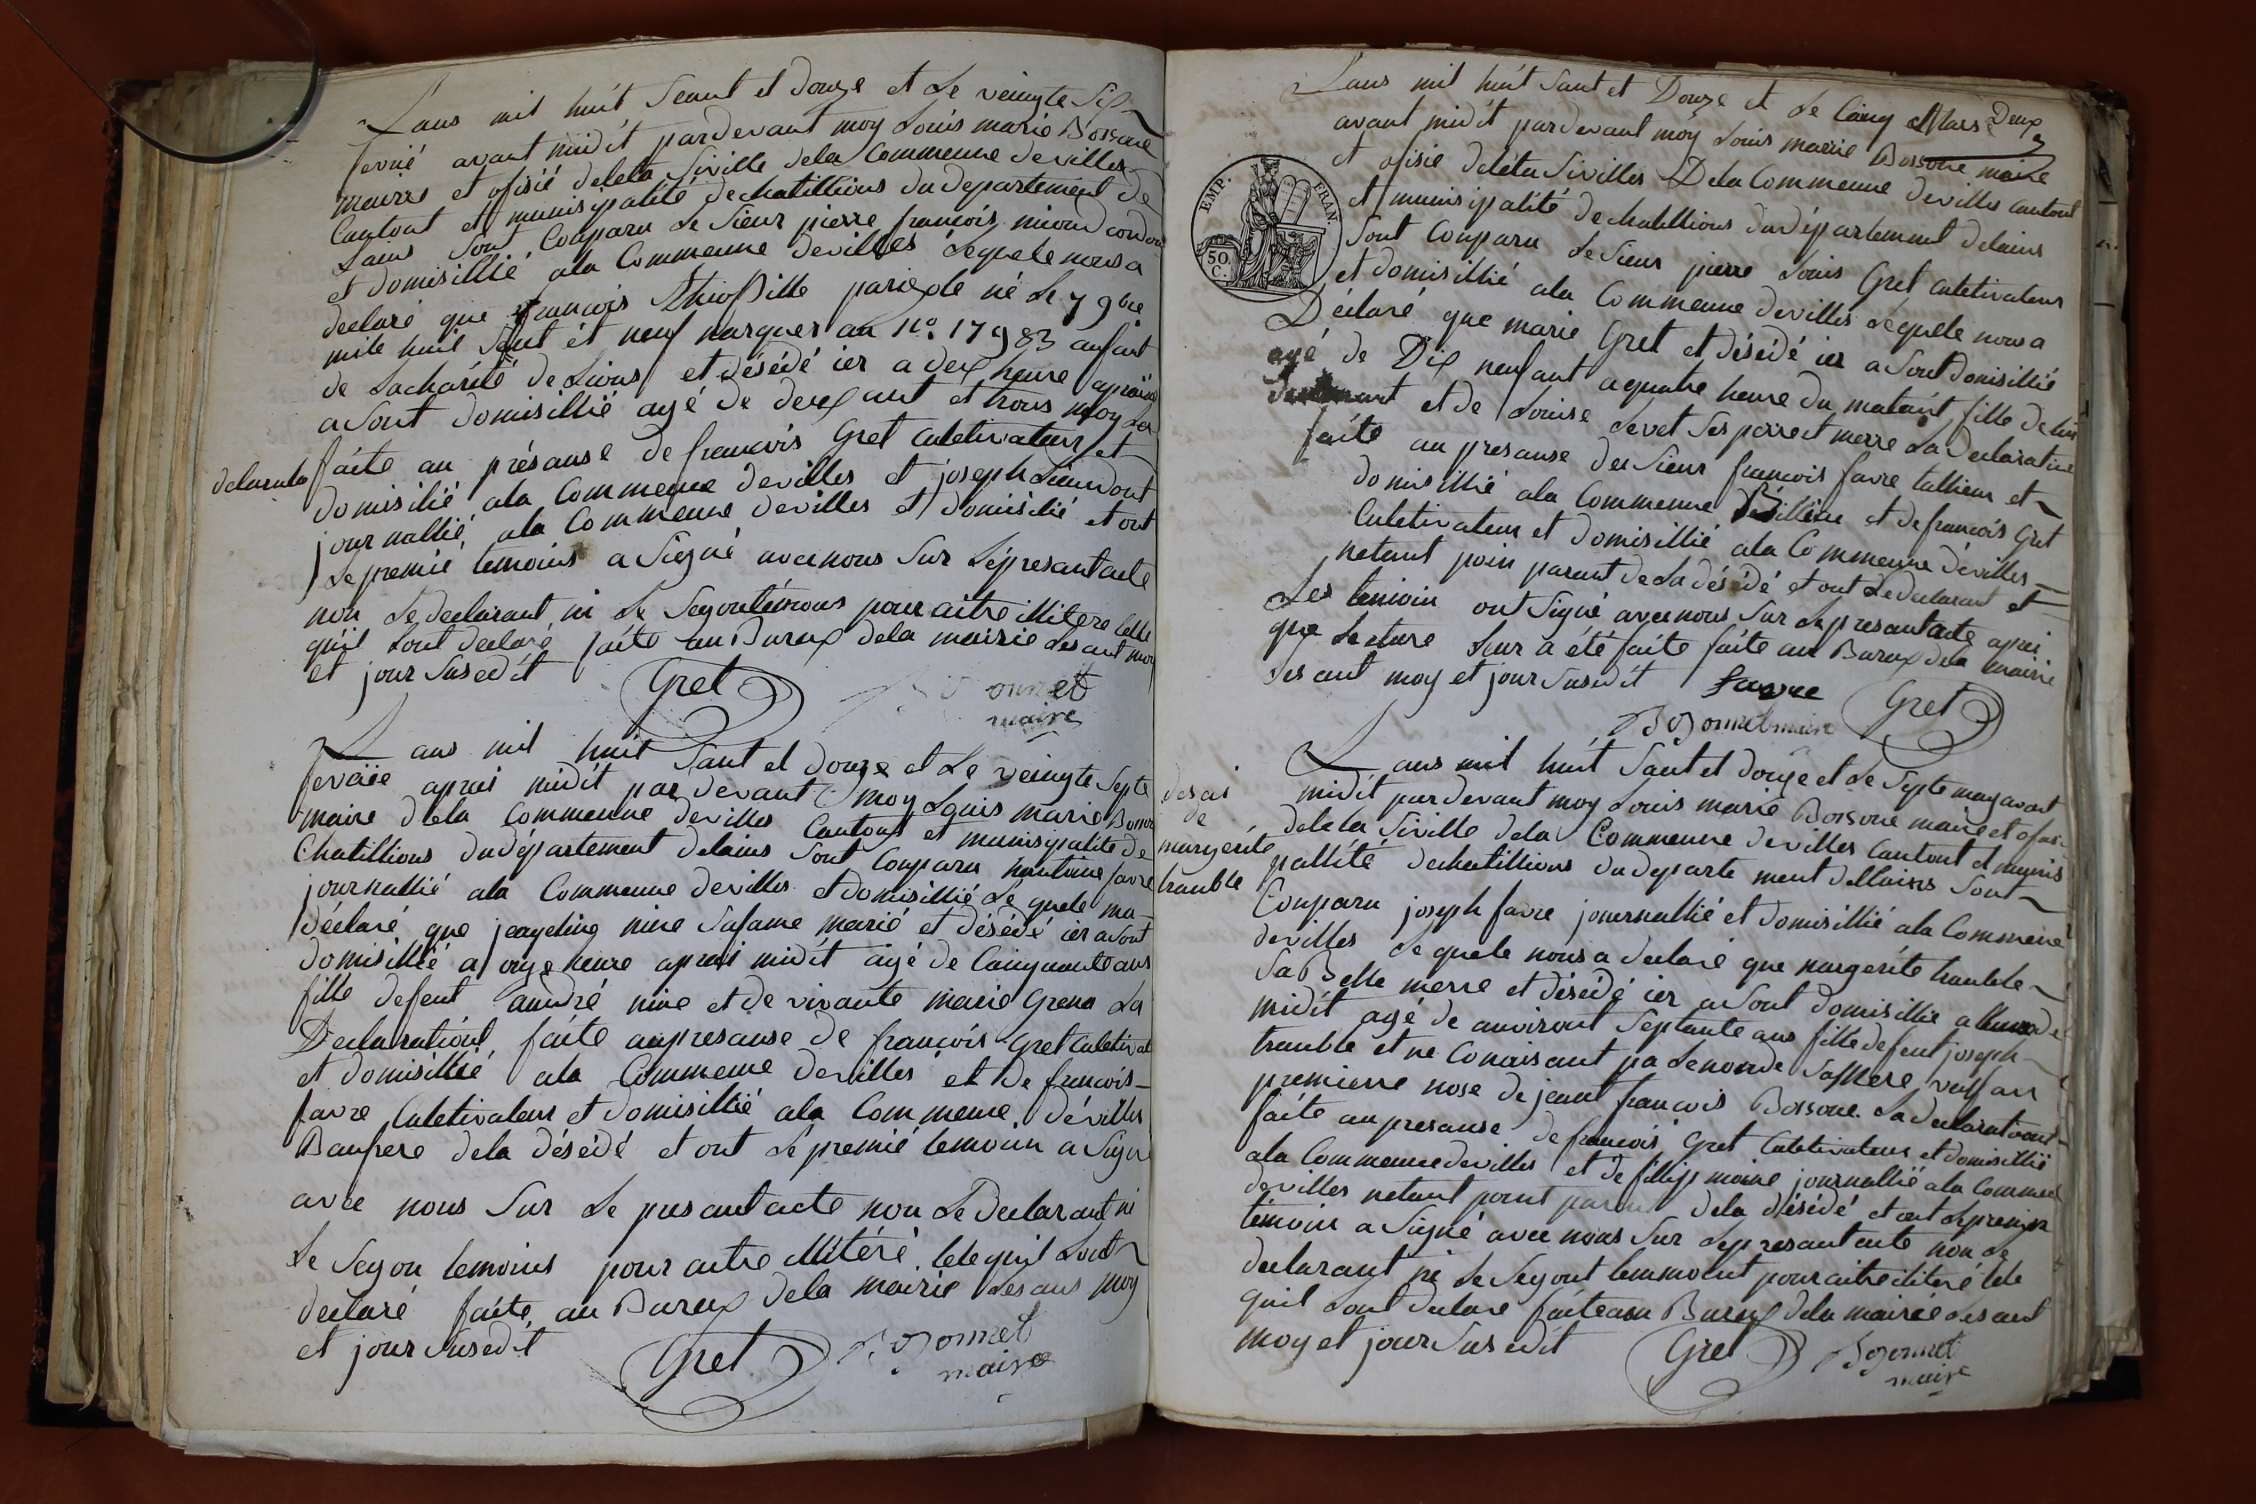 Lans mil huit Seant et douze et Le veingte Sis
fevrié avant midit pardevant moy Louis marie Bossone
mairre et ofisié deleta Siville dela Commeune devilles
Cantont et munisipalité de chatillions du departement de
Lains Sont Conparu Le Sieur pierre francois
et domisillié ala Commeune devilles Lequele nous a
declaré que francois né Le 7 9bre
mile huil Sent et neuf marquer au No. 17983 anfant
de Lacharité de Lions et désédé ier a deux heure apraimi
a Sont domisillié agé de deux ant et trois moy La
delarate
faite au présanse de francois Gret Culetivateur et
domisilié ala Commeune devilles et joseph
journallié ala Commeune devilles et domisilié et ont
Le premié temoins a Signé avec nous Sur Lepresantacte
non Le declarant ni Le Segont temoins pour aitre illitere Celle
quil Lont declaré faite au Bureux dela mairie Les ant moy
et jour Susedit Gret Bosonnet
maire
Lans mil huit Sant et douze et Le veingte Septe
fevrié aprai midit par devant moy Louis marie Bosson
maire dela Commeune devilles Cantons et munisipalite de
Chatillions du département delains Sont Conparu favre
journallié ala Commeune devilles et domisillié Le quele ma
déclaré que nive Safame marié et désédé ier a Sont
domisillié a onze heure aprai midit agé de Cinquante ans
fille defeut andré nive et de vivante marie Grena La
Declarationt faite aupresanse de francois Gret Culetivat
et domisillié ala Commeune devilles et de francois
favre Culetivateur et domisillié ala Commeune dévilles
Baupere dela désédé et ont Le premié temoin a Signé
avec nous Sur Le presant acte non Le Declarant ni
Le Segon temoins pour aitre illitéré Cele quil Lont
declaré faite au Bureux dela mairie Les ans moy
et jour Susedit Gret Bosonnet
maire
Lans mil huit Sant et Douze et Le Cainq Mars Deux
avant midit pardevant moy Louis marie Bossone maire
et ofisié deléta Sivilles Dela Commeune devilles Cantont
et munisipalité de chatillions du département delains
EMP. FRAN.
50 C.
Sont Conparu Le Sieur pierre Louis Gret Culetivateur
et domisillié ala Commeune devilles Lequele nous a
Déclaré que marie Gret et désédé ier a Sont domisillié
agé de Dix neuf ant a quatre heure du matint fille de lui
et de Louise Ses perre et merre La Declaratione
faite au presanse du Sieur francois favre tallieur et
domisillié ala Commeune et de francois Gret
Culetivateur et domisillié ala Commeune dévilles
netant poin parant de La désédé et ont Le declarant et
Les temoin ont Signé avec nous Sur Lepresantacte aprai
que Lecture Leur a été faite faite au Bureux dela mairie
Les ant moy et jour Susedit favre Gret
Bosonnet maire
desai
de
margerite
tranble
Lans mil huit Sant et douze et Le Septe may avant
midit pardevant moy Louis marie Bossone maire et ofisi
deleta Siville dela Commeune devilles Cantont et munis
pallité dechatillions du departement dellains Sont
Conparu joseph favre journallié et domisillié ala Commeune
devilles Lequele nous a declaré que margerite tranble
Sa Belle merre et désédé ier a Sont domisillie a
midit agé de anviront Septante ans fille defeut joseph
tranble et ne Conaisant pa Lenon de Samere
premierre nose de jeant francois Bossone La declarationt
faite aupresanse de francois Gret Culetivateur et domisillié
ala Commeune devilles et de fillip moine journallié ala Commeune
devilles netant point parant dela désédé et ont Lepremier
temoin a Signé avec nous Sur Lepresantacte non Le
declarant ni Le Segont temmoint pour aitre iliteré Cele
quil Lont declare faite au Bureux dela mairie Les ant
moy et jour Sus edit Gret Bosonnet
maire